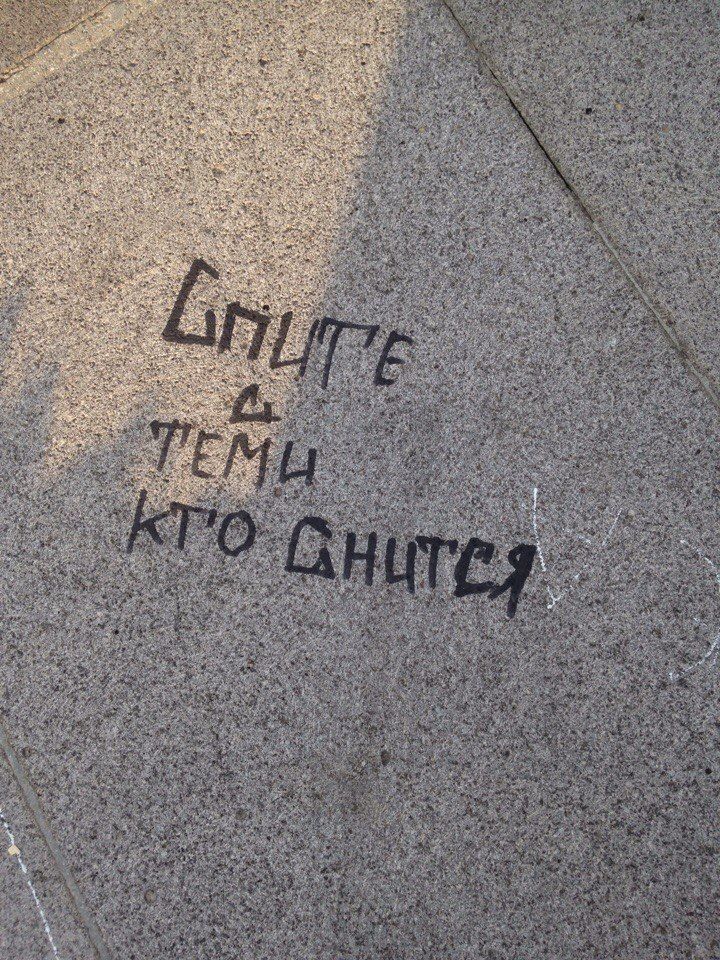 Спите
с
теми
кто снится